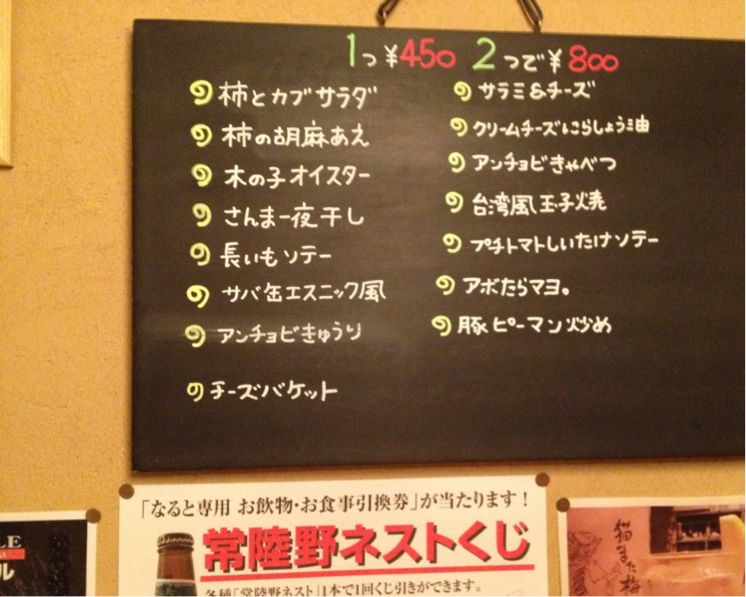 1つ¥450 2つで¥800
柿とカブサラダ
柿の胡麻あえ
木の子オイスター
さんま一夜干し
長いもソテー
サバ缶エスニック風
アンチョビきゅうり
チーズバケット
サラミ&チーズ
クリームチーズにらしょう油
アンチョビきゃべつ
台湾風玉子焼
プチトマトしいたけソテー
アボたらマヨ。
豚ピーマン炒め
「なると専用 お飲物・お食事引換券」が当たります!
常陸野ネストくじ
各種「常陸野ネスト」1本で1回くじ引きができます。
ル
猫また梅